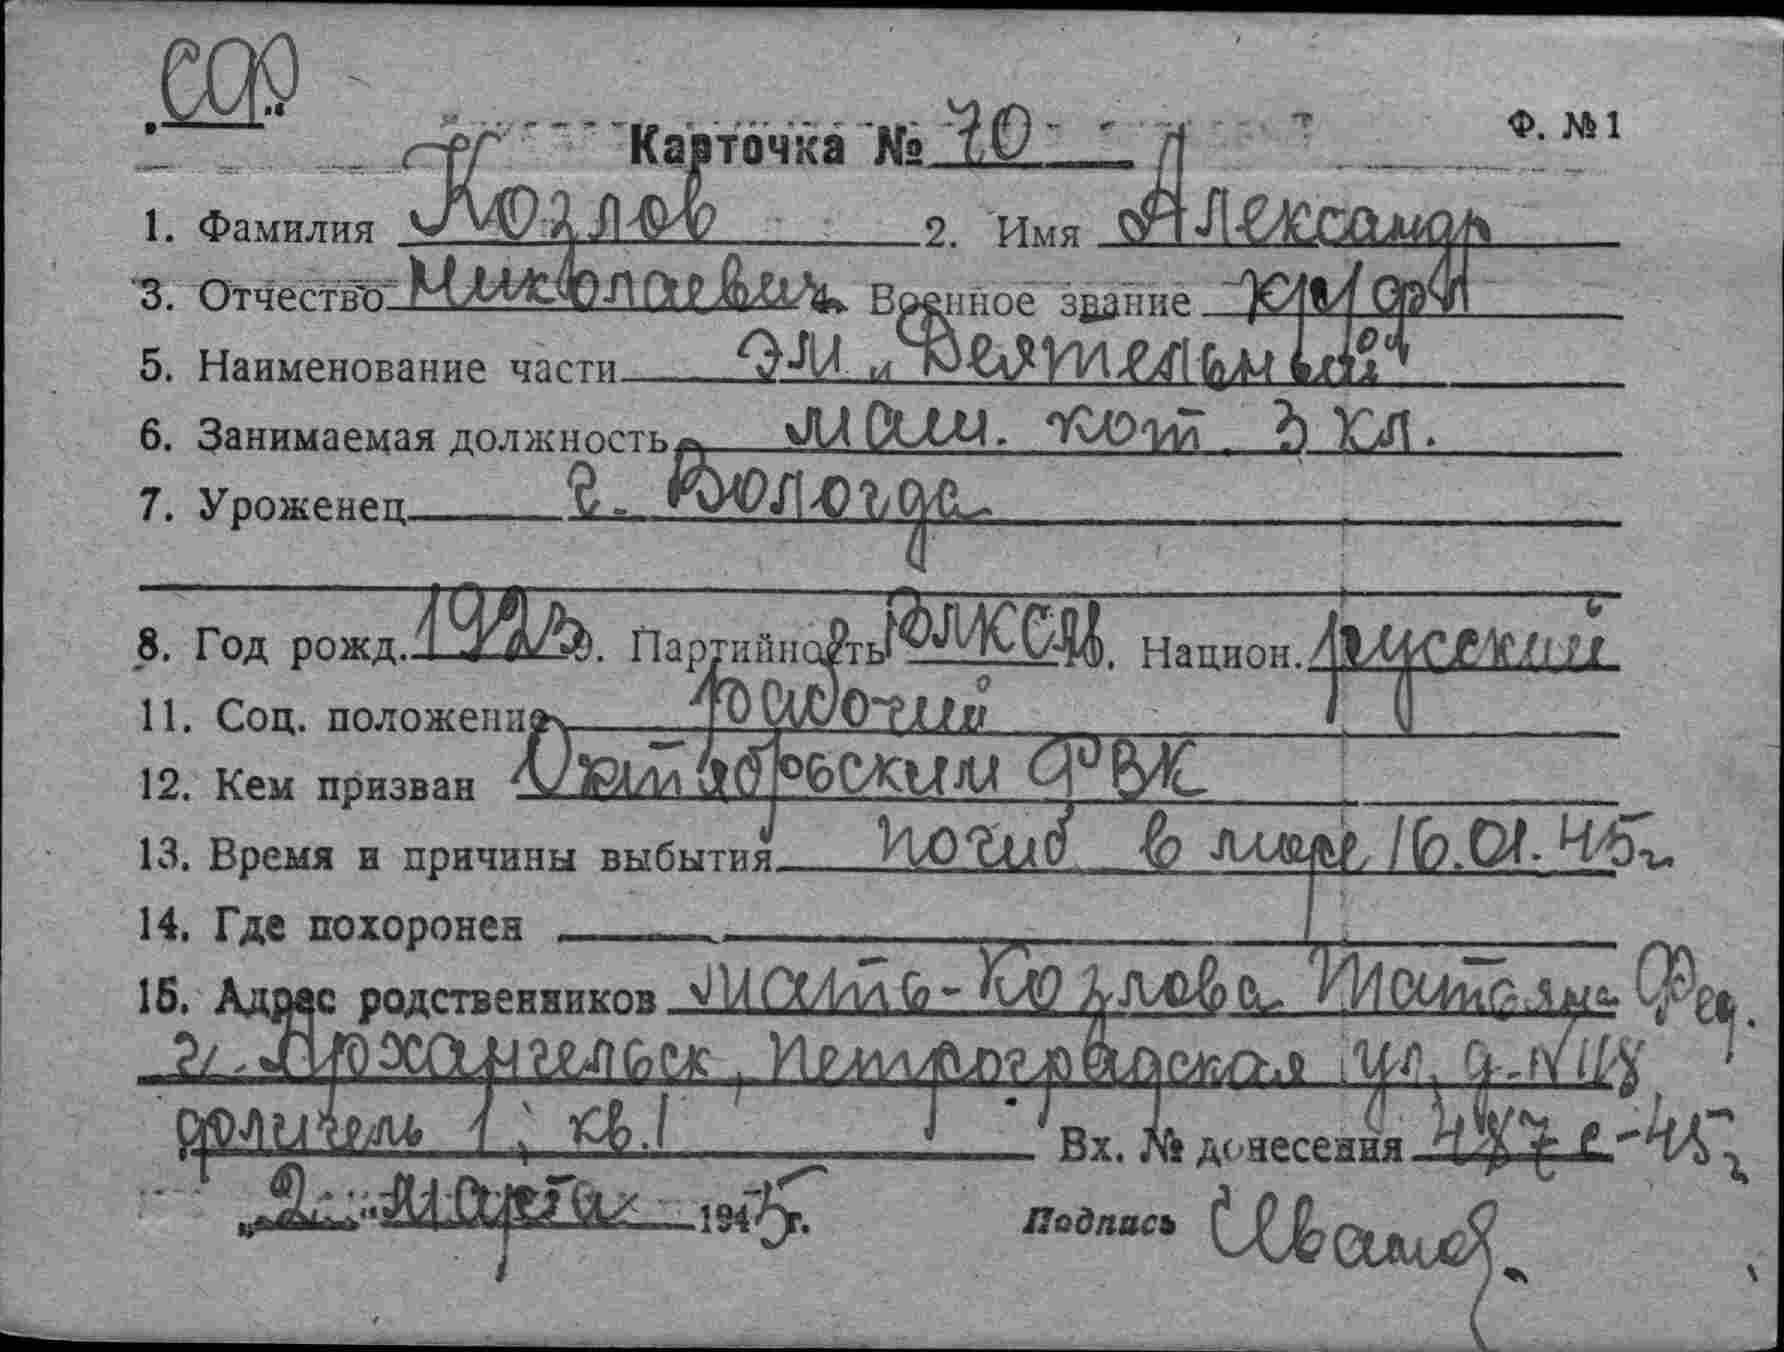 СФ
Карточка № 70 Ф. №1
1. Фамилия Козлов 2. Имя Александр
3. Отчество Николаевич Военное звание кр-ц
5. Наименование части ЭМ „Деятельный“
6. Занимаемая должность маш. кот. 3 кл.
7. Уроженец г. Вологда
8. Год рожд. 1923. Партийность ВЛКСМ. Национ. русский
11. Соц. положение рабочий
12. Кем призван Октябрьским РВК
13. Время и причины выбытия погиб в море 16.01.45г
14. Где похоронен
15. Адрес родственников мать - Козлова Татьяна Фед.
г. Архангельск, Петроградская ул. д. №118
флигель 1, кв. 1 Вх. № донесения 487с-45г
„2“ марта 1945г. Подпись Иванов